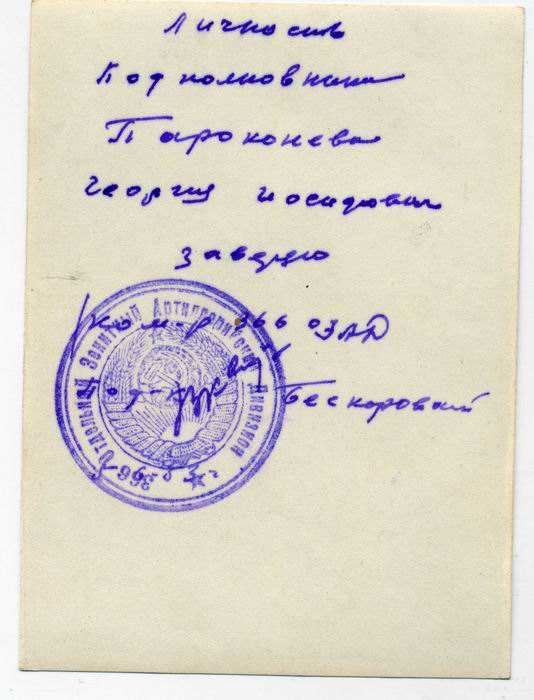 Личность
Подполковника
Пароконева
Георгия Иосифовича
заверяю
Ком-р 366 ОЗАД
Подп-к Бескоровай
Отдельный Зенитный Артиллерийский Дивизион
366